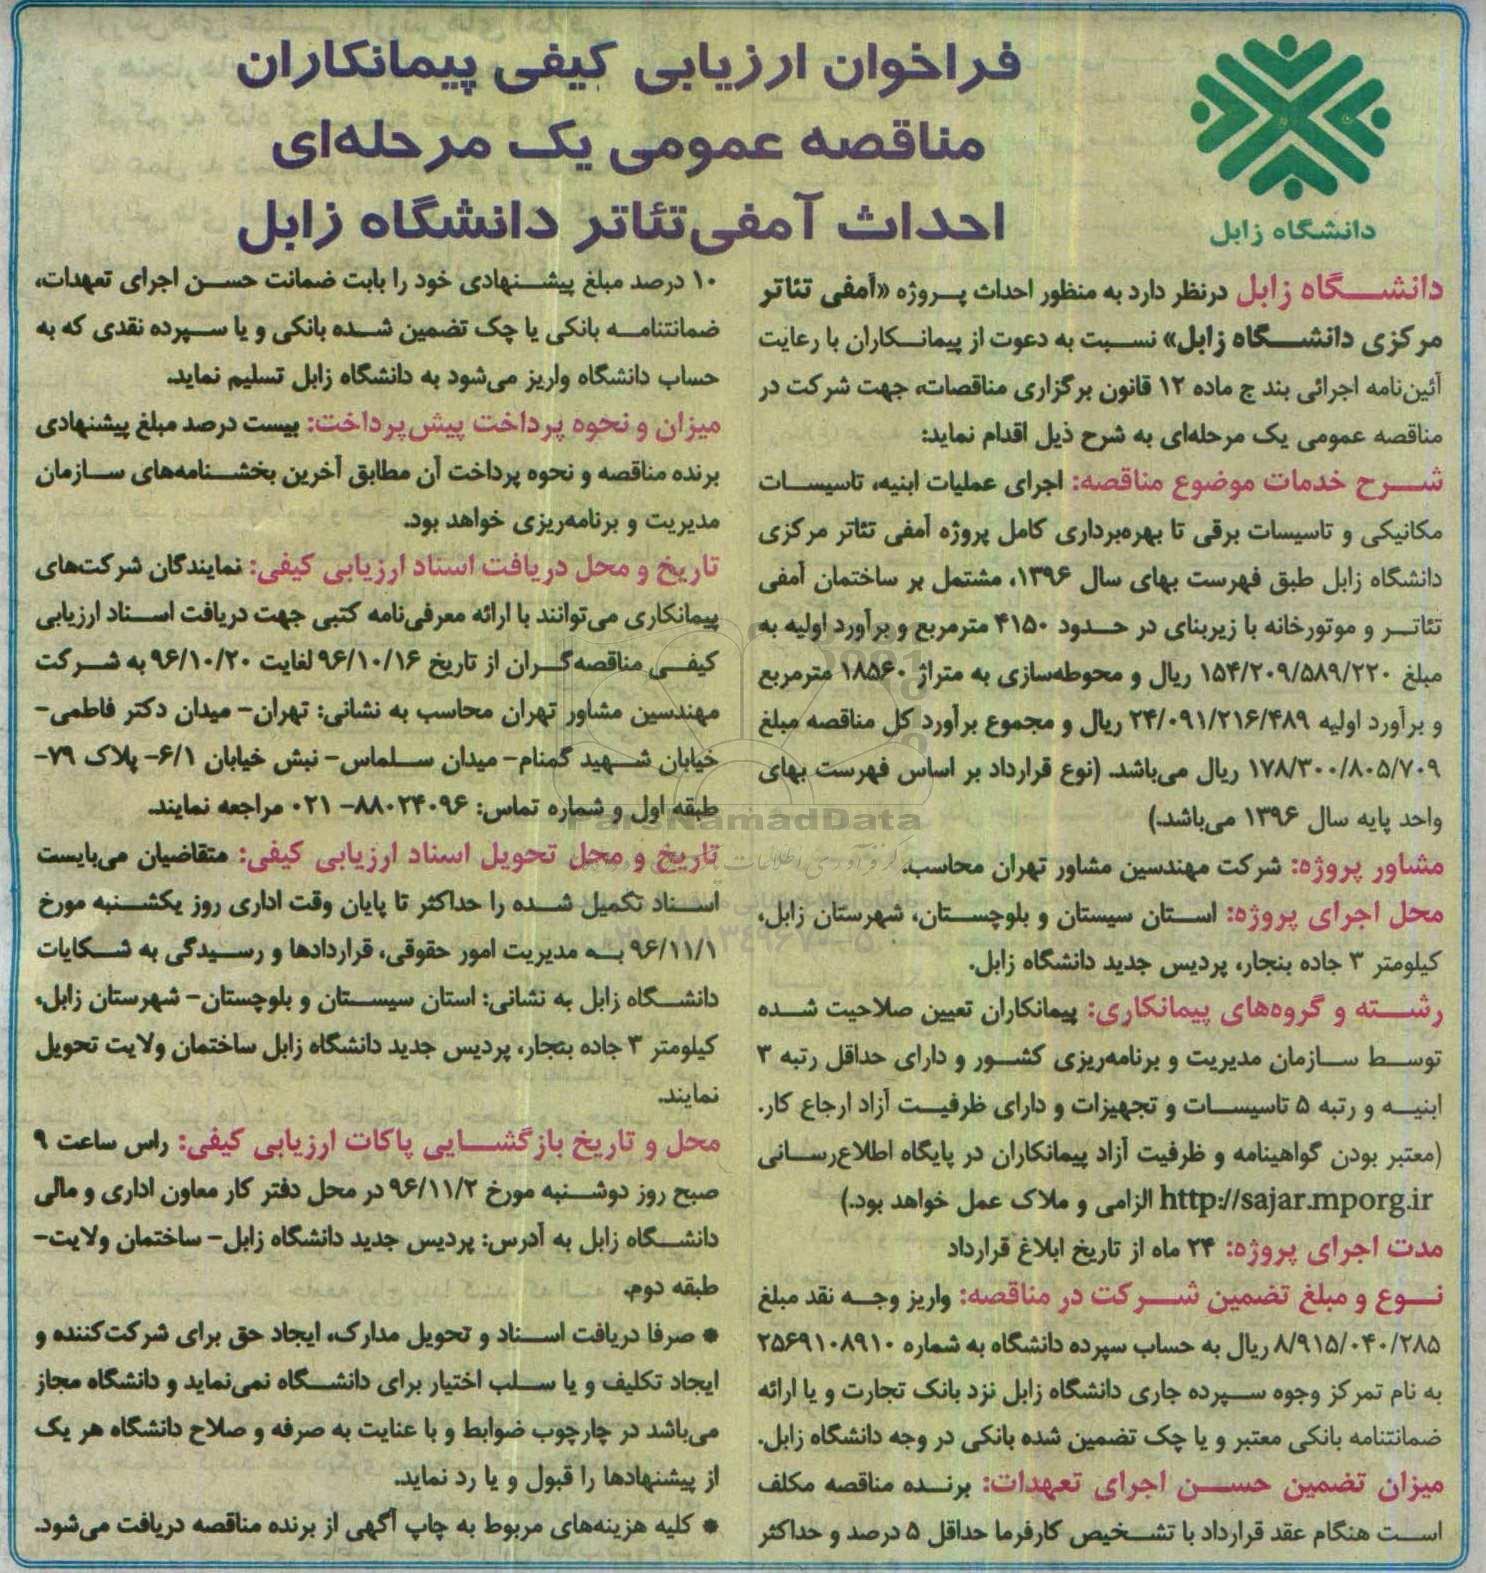 فراخوان ارزیابی کیفی پیمانکاران
مناقصه عمومی یک مرحله‌ای
احداث آمفی‌تئاتر دانشگاه زابل
دانشگاه زابل
دانشگاه زابل درنظر دارد به منظور احداث پروژه «آمفی تئاتر
مرکزی دانشگاه زابل» نسبت به دعوت از پیمانکاران با رعایت
آئین‌نامه اجرائی بند ج ماده ۱۲ قانون برگزاری مناقصات، جهت شرکت در
مناقصه عمومی یک مرحله‌ای به شرح ذیل اقدام نماید:
شرح خدمات موضوع مناقصه: اجرای عملیات ابنیه، تاسیسات
مکانیکی و تاسیسات برقی تا بهره‌برداری کامل پروژه آمفی تئاتر مرکزی
دانشگاه زابل طبق فهرست بهای سال ۱۳۹۶، مشتمل بر ساختمان آمفی
تئاتر و موتورخانه با زیربنای در حدود ۴۱۵۰ مترمربع و برآورد اولیه به
مبلغ ۱۵۴/۲۰۹/۵۸۹/۲۲۰ ریال و محوطه‌سازی به متراژ ۱۸۵۶۰ مترمربع
و برآورد اولیه ۲۴/۰۹۱/۲۱۶/۴۸۹ ریال و مجموع برآورد کل مناقصه مبلغ
۱۷۸/۳۰۰/۸۰۵/۷۰۹ ریال می‌باشد. (نوع قرارداد بر اساس فهرست بهای
واحد پایه سال ۱۳۹۶ می‌باشد.)
مشاور پروژه: شرکت مهندسین مشاور تهران محاسب.
محل اجرای پروژه: استان سیستان و بلوچستان، شهرستان زابل،
کیلومتر ۳ جاده بنجار، پردیس جدید دانشگاه زابل.
رشته و گروه‌های پیمانکاری: پیمانکاران تعیین صلاحیت شده
توسط سازمان مدیریت و برنامه‌ریزی کشور و دارای حداقل رتبه ۳
ابنیه و رتبه ۵ تاسیسات و تجهیزات و دارای ظرفیت آزاد ارجاع کار.
(معتبر بودن گواهینامه و ظرفیت آزاد پیمانکاران در پایگاه اطلاع‌رسانی
http://sajar.mporg.ir الزامی و ملاک عمل خواهد بود.)
مدت اجرای پروژه: ۲۴ ماه از تاریخ ابلاغ قرارداد
نوع و مبلغ تضمین شرکت در مناقصه: واریز وجه نقد مبلغ
۸/۹۱۵/۰۴۰/۲۸۵ ریال به حساب سپرده دانشگاه به شماره ۲۵۶۹۱۰۸۹۱۰
به نام تمرکز وجوه سپرده جاری دانشگاه زابل نزد بانک تجارت و یا ارائه
ضمانتنامه بانکی معتبر و یا چک تضمین شده بانکی در وجه دانشگاه زابل.
میزان تضمین حسن اجرای تعهدات: برنده مناقصه مکلف
است هنگام عقد قرارداد با تشخیص کارفرما حداقل ۵ درصد و حداکثر
۱۰ درصد مبلغ پیشنهادی خود را بابت ضمانت حسن اجرای تعهدات،
ضمانتنامه بانکی یا چک تضمین شده بانکی و یا سپرده نقدی که به
حساب دانشگاه واریز می‌شود به دانشگاه زابل تسلیم نماید.
میزان و نحوه پرداخت پیش‌پرداخت: بیست درصد مبلغ پیشنهادی
برنده مناقصه و نحوه پرداخت آن مطابق آخرین بخشنامه‌های سازمان
مدیریت و برنامه‌ریزی خواهد بود.
تاریخ و محل دریافت اسناد ارزیابی کیفی: نمایندگان شرکت‌های
پیمانکاری می‌توانند با ارائه معرفی‌نامه کتبی جهت دریافت اسناد ارزیابی
کیفی مناقصه‌گران از تاریخ ۹۶/۱۰/۱۶ لغایت ۹۶/۱۰/۲۰ به شرکت
مهندسین مشاور تهران محاسب به نشانی: تهران- میدان دکتر فاطمی-
خیابان شهید گمنام- میدان سلماس- نبش خیابان ۶/۱- پلاک ۷۹-
طبقه اول و شماره تماس: ۸۸۰۲۴۰۹۶- ۰۲۱ مراجعه نمایند.
تاریخ و محل تحویل اسناد ارزیابی کیفی: متقاضیان می‌بایست
اسناد تکمیل شده را حداکثر تا پایان وقت اداری روز یکشنبه مورخ
۹۶/۱۱/۱ به مدیریت امور حقوقی، قراردادها و رسیدگی به شکایات
دانشگاه زابل به نشانی: استان سیستان و بلوچستان- شهرستان زابل،
کیلومتر ۳ جاده بنجار، پردیس جدید دانشگاه زابل ساختمان ولایت تحویل
نمایند.
محل و تاریخ بازگشایی پاکات ارزیابی کیفی: راس ساعت ۹
صبح روز دوشنبه مورخ ۹۶/۱۱/۲ در محل دفتر کار معاون اداری و مالی
دانشگاه زابل به آدرس: پردیس جدید دانشگاه زابل- ساختمان ولایت-
طبقه دوم.
* صرفا دریافت اسناد و تحویل مدارک، ایجاد حق برای شرکت‌کننده و
ایجاد تکلیف و یا سلب اختیار برای دانشگاه نمی‌نماید و دانشگاه مجاز
می‌باشد در چارچوب ضوابط و با عنایت به صرفه و صلاح دانشگاه هر یک
از پیشنهادها را قبول و یا رد نماید.
* کلیه هزینه‌های مربوط به چاپ آگهی از برنده مناقصه دریافت می‌شود.
ParsNamadData